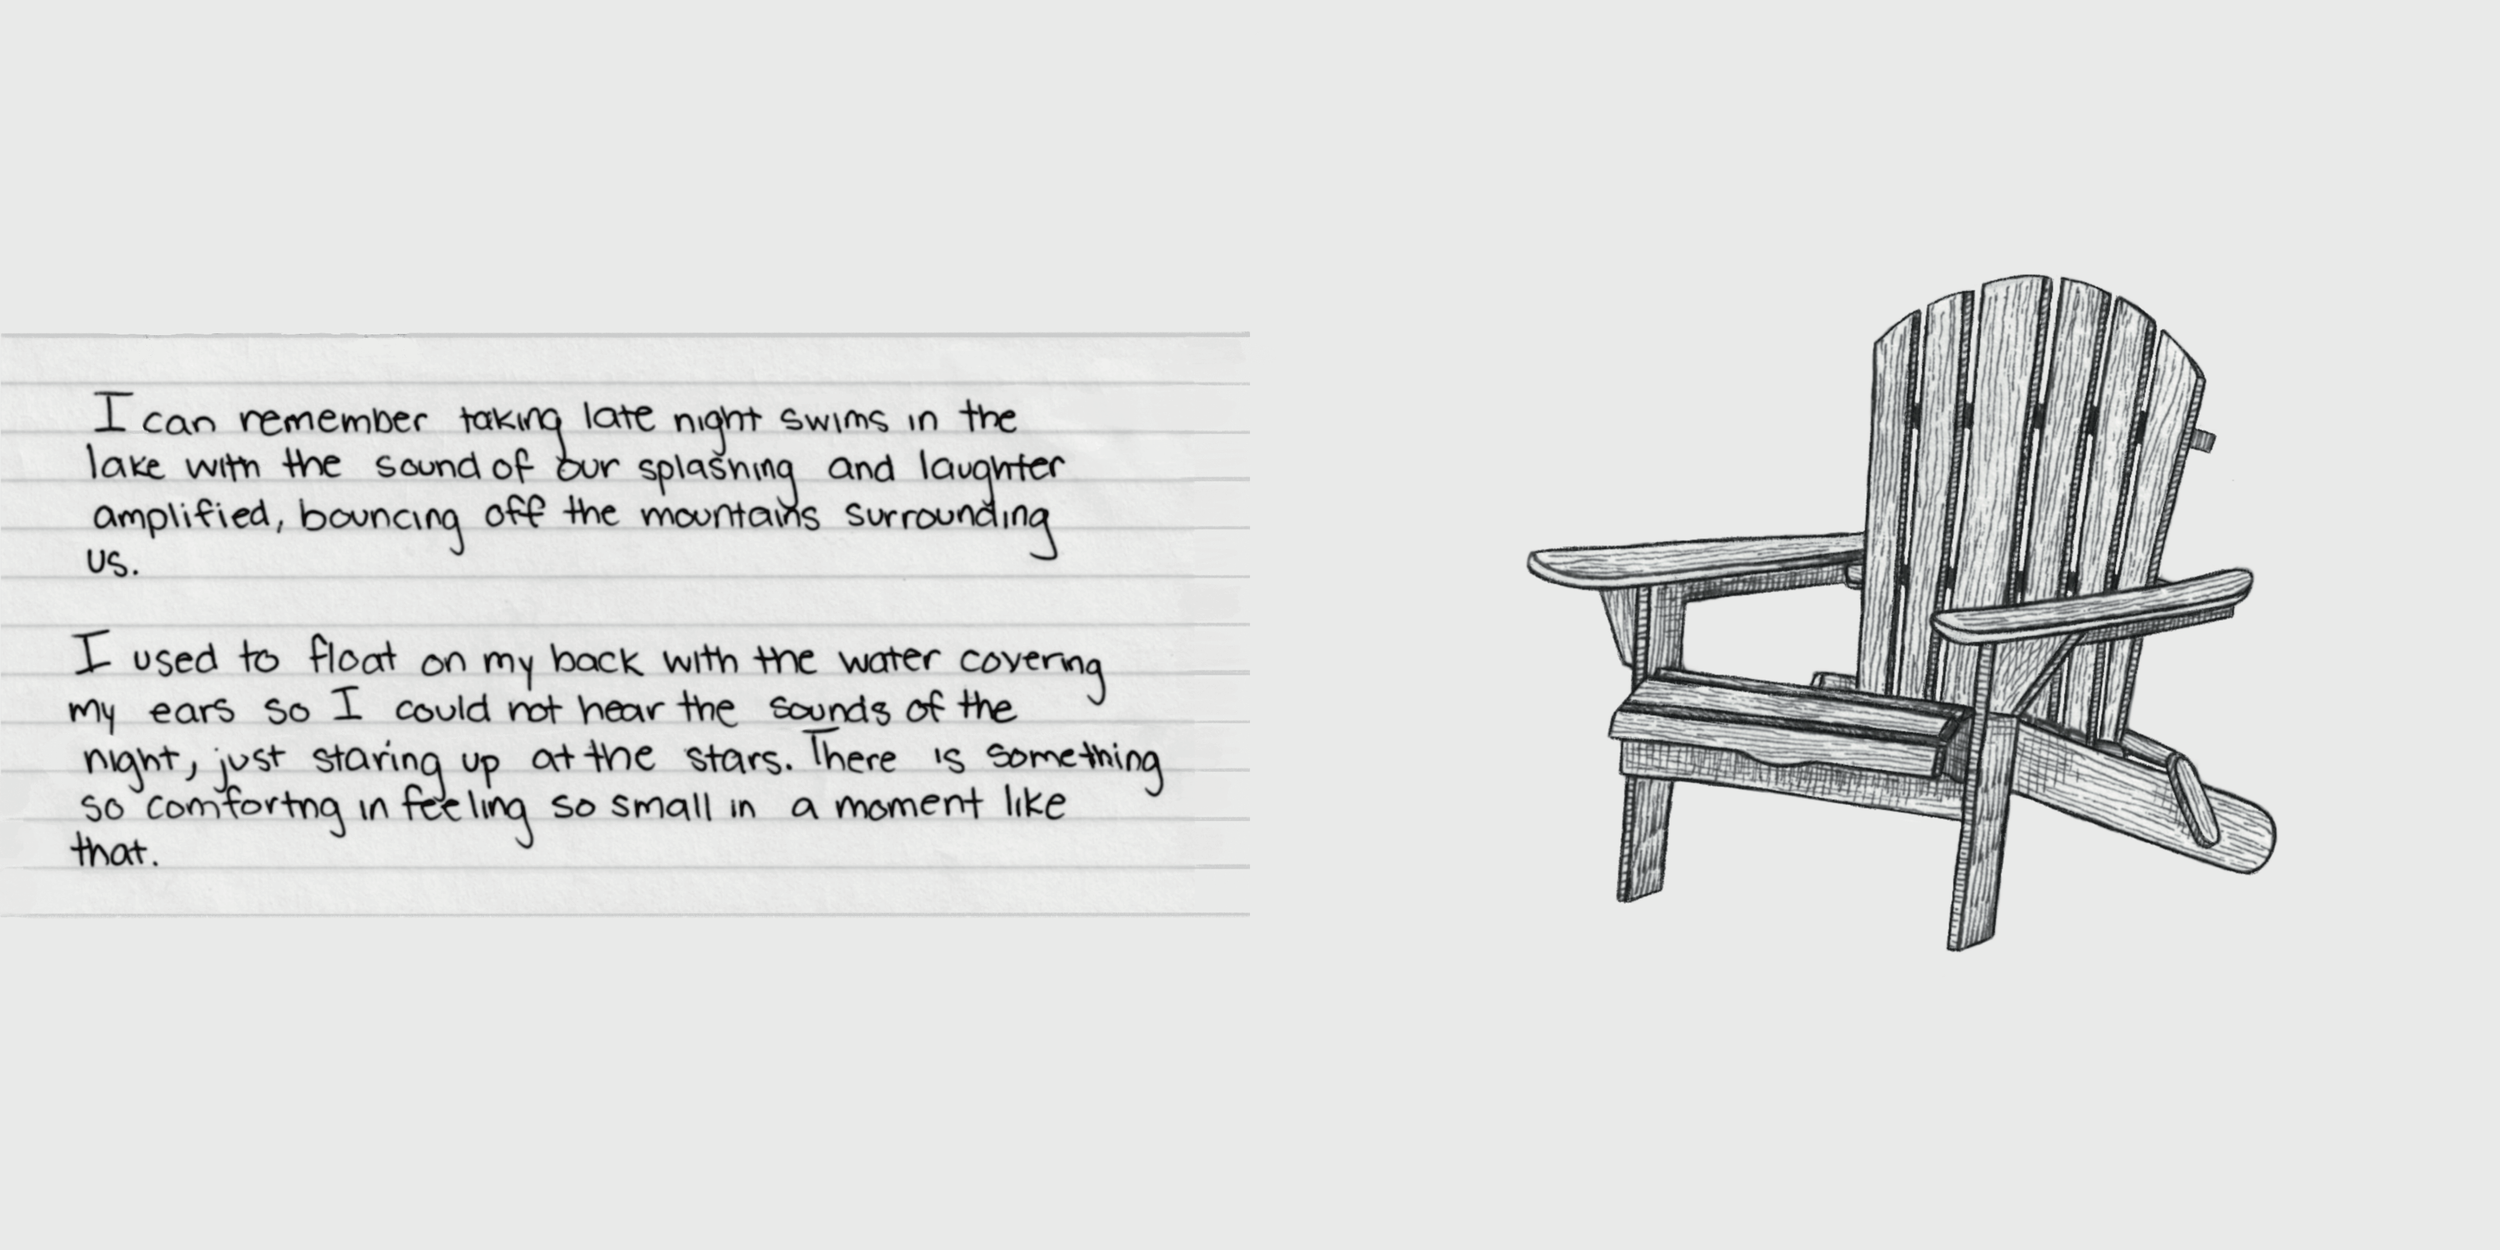 I can remember taking late night swims in the
lake with the sound of our splashing and laughter
amplified, bouncing off the mountains surrounding
us.
I used to float on my back with the water covering
my ears so I could not hear the sounds of the
night, just staring up at the stars. There is something
so comfortng in feeling so small in a moment like
that.